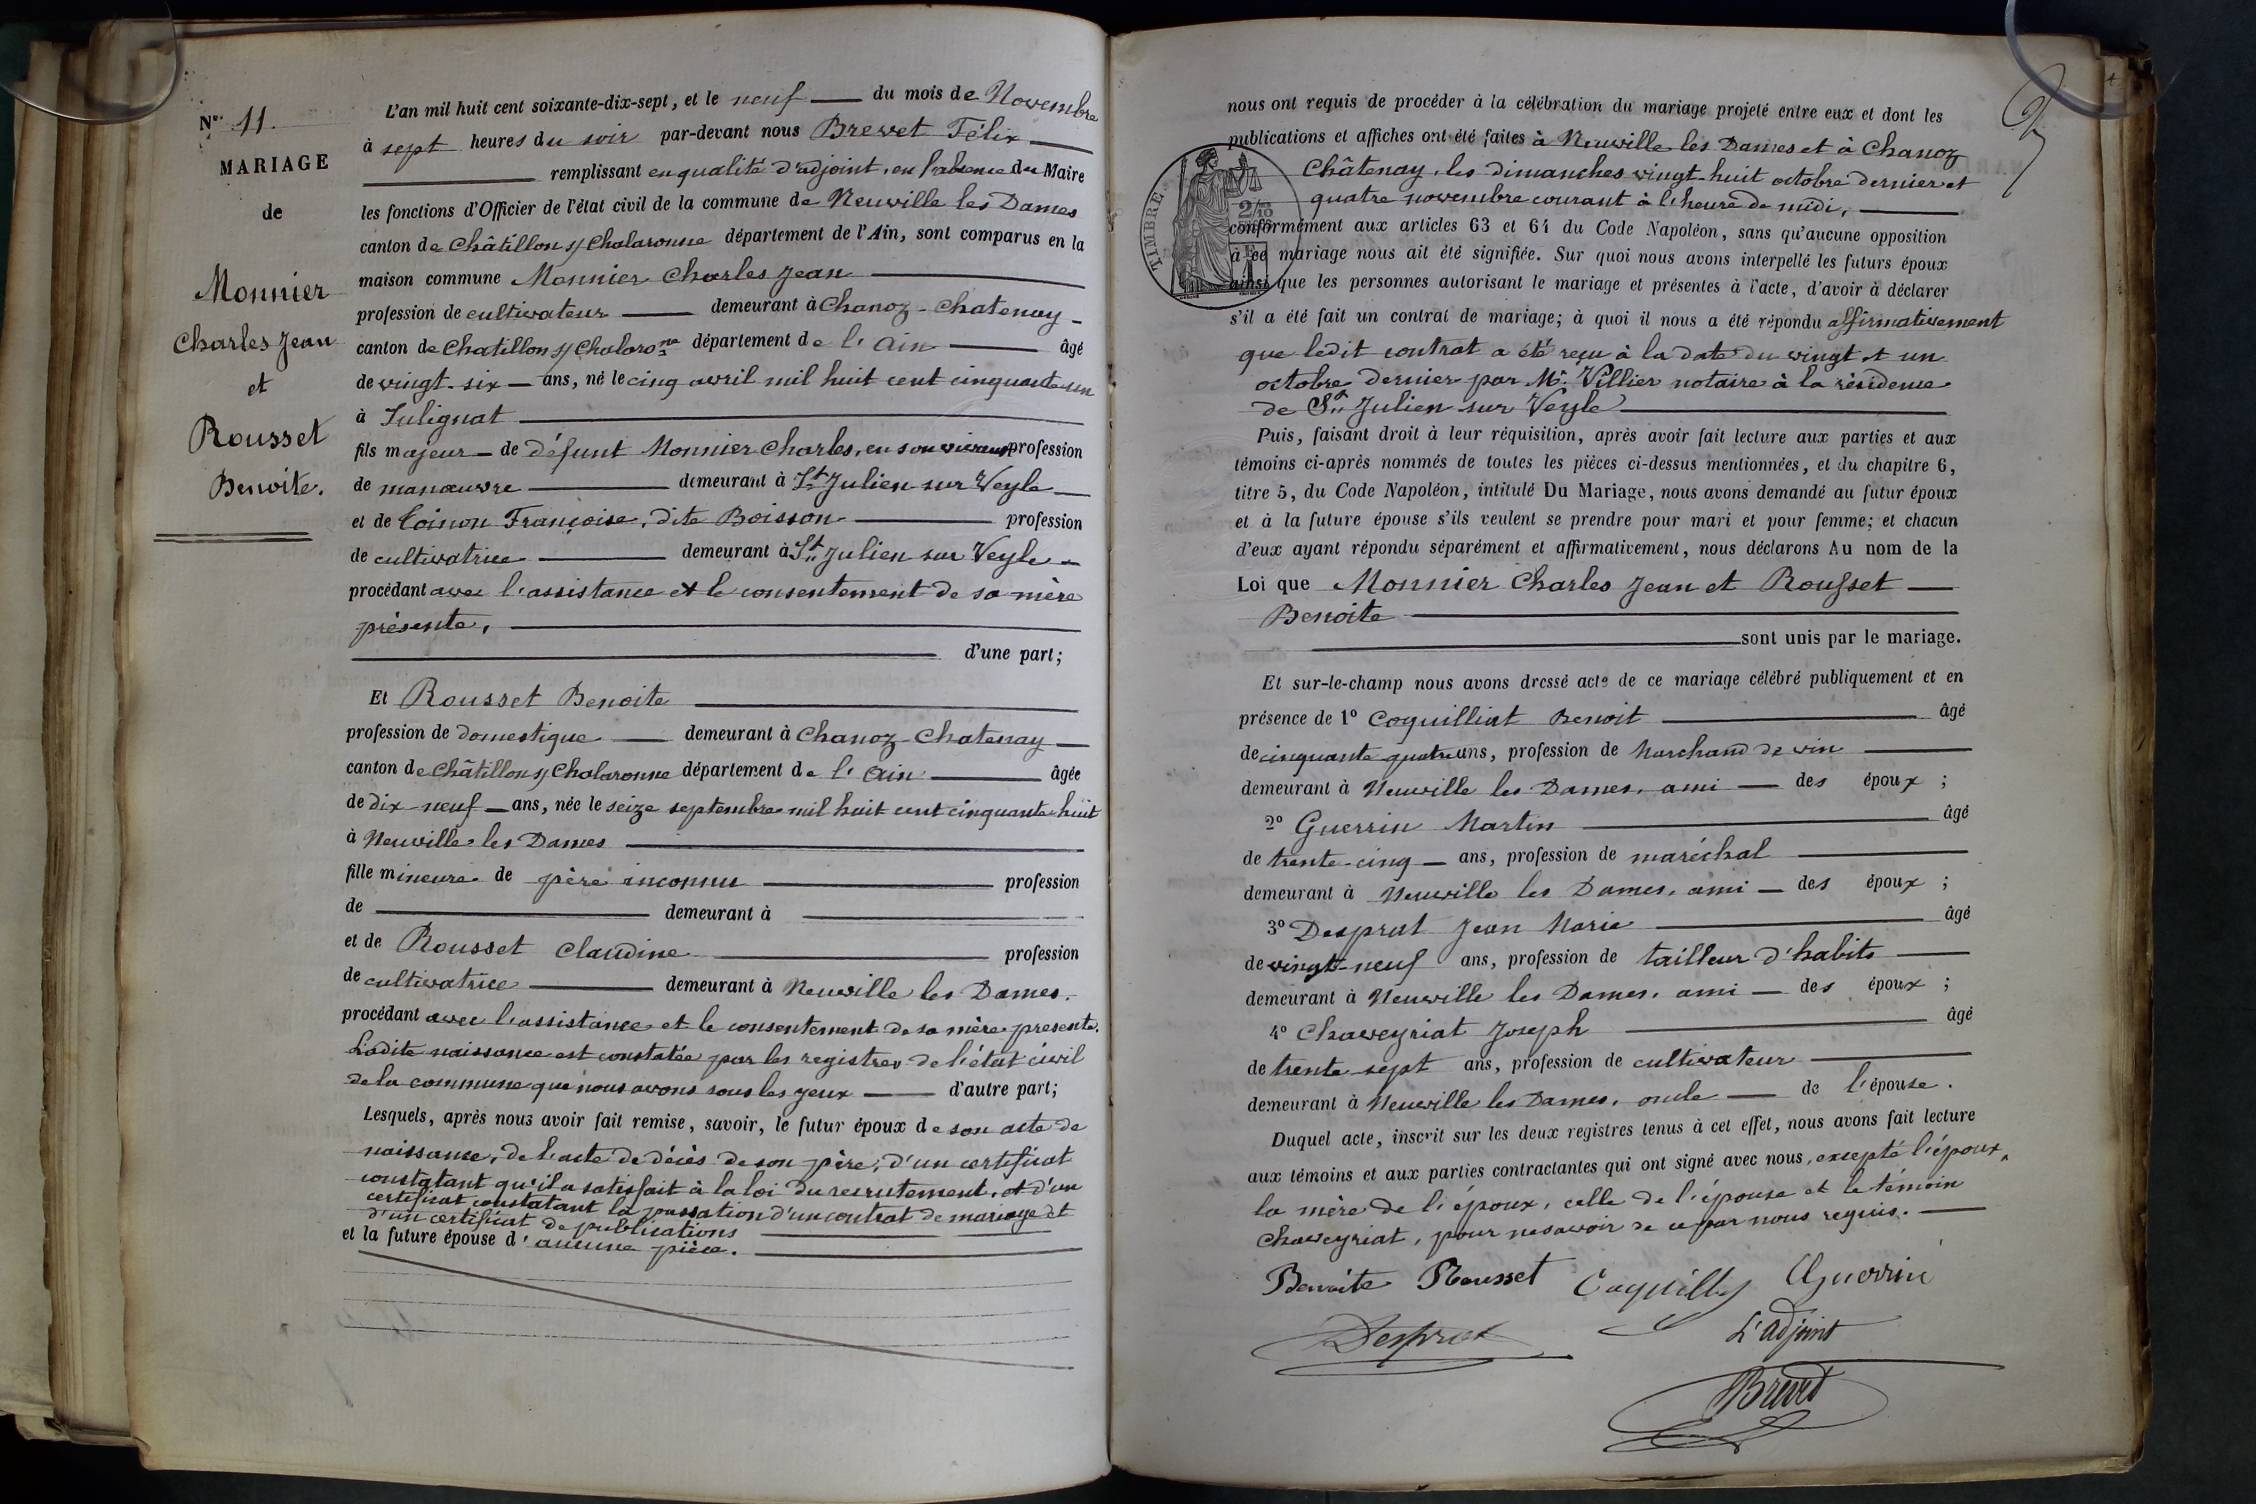 No. 11.
MARIAGE
de
Monnier
Charles Jean
et
Rousset
Benoite.
L'an mil huit cent soixante-dix-sept, et le neuf du mois de Novembre
à sept heures du soir par-devant nous Brevet Félix
remplissant en qualité d'adjoint, en l'absence du Maire
les fonctions d'Officier de l'état civil de la commune de Neuville les Dames
canton de Châtillon s/ Chalaronne département de l'Ain, sont comparus en la
maison commune Monnier Charles Jean
profession de cultivateur demeurant à Chanoz-Chatenay
canton de Chatillon s/ Chalaronne département de l'Ain âgé
de vingt-six ans, né le cinq avril mil huit cent cinquante-un
à Sulignat
fils majeur de défunt Monnier Charles, en son vivant profession
de manœuvre demeurant à St Julien sur Veyle
et de Coinon Françoise, dite Boisson profession
de cultivatrice demeurant à St Julien sur Veyle
procédant avec l'assistance et le consentement de sa mère
présente,
d'une part;
Et Rousset Benoite
profession de domestique demeurant à Chanoz-Chatenay
canton de Châtillon s/ Chalaronne département de l'Ain âgée
de dix-neuf ans, née le seize septembre mil huit cent cinquante-huit
à Neuville-les Dames
fille mineure de père inconnu profession
de demeurant à
et de Rousset Claudine profession
de cultivatrice demeurant à Neuville les Dames.
procédant avec l'assistance et le consentement de sa mère présente.
Ladite naissance est constatée par les registres de l'état civil
de la commune que nous avons sous les yeux d'autre part;
Lesquels, après nous avoir fait remise, savoir, le futur époux de son acte de
naissance, de l'acte de décès de son père, d'un certificat
constatant qu'il a satisfait à la loi du recrutement, et d'un
certificat constatant la passation d'un contrat de mariage et
d'un certificat de publications
et la future épouse d'aucune pièce.
nous ont requis de procéder à la célébration du mariage projeté entre eux et dont les
publications et affiches ont été faites à Neuville les Dames et à Chanoz
Châtenay, les dimanches vingt-huit octobre dernier et
quatre novembre courant à l'heure de midi,
TIMBRE
2/10
conformément aux articles 63 et 64 du Code Napoléon, sans qu'aucune opposition
à ce mariage nous ait été signifiée. Sur quoi nous avons interpellé les futurs époux
ainsi que les personnes autorisant le mariage et présentes à l'acte, d'avoir à déclarer
s'il a été fait un contrat de mariage; à quoi il nous a été répondu affirmativement
que ledit contrat a été reçu à la date du vingt et un
octobre dernier par Me Villier notaire à la résidence
de St Julien sur Veyle
Puis, faisant droit à leur réquisition, après avoir fait lecture aux parties et aux
témoins ci-après nommés de toutes les pièces ci-dessus mentionnées, et du chapitre 6,
titre 5, du Code Napoléon, intitulé Du Mariage, nous avons demandé au futur époux
et à la future épouse s'ils veulent se prendre pour mari et pour femme; et chacun
d'eux ayant répondu séparément et affirmativement, nous déclarons Au nom de la
Loi que Monnier Charles Jean et Rousset
Benoite
sont unis par le mariage.
Et sur-le-champ nous avons dressé acte de ce mariage célébré publiquement et en
présence de 1º Coquilliat Benoit âgé
de cinquante quatre ans, profession de Marchand de vin
demeurant à Neuville les Dames, ami des époux ;
2º Guerrin Martin âgé
de trente-cinq ans, profession de maréchal
demeurant à Neuville les Dames, ami des époux ;
3º Desprat Jean Marie âgé
de vingt-neuf ans, profession de tailleur d'habits
demeurant à Neuville les Dames, ami des époux ;
4º Chaveyriat Joseph âgé
de trente-sept ans, profession de cultivateur
demeurant à Neuville les Dames, oncle de l'épouse.
Duquel acte, inscrit sur les deux registres tenus à cet effet, nous avons fait lecture
aux témoins et aux parties contractantes qui ont signé avec nous, excepté l'époux,
la mère de l'époux, celle de l'épouse et le témoin
Chaveyriat, pour ne savoir de ce par nous requis.
Benoite Rousset Guerrin
Desprat L'adjoint
Brevet